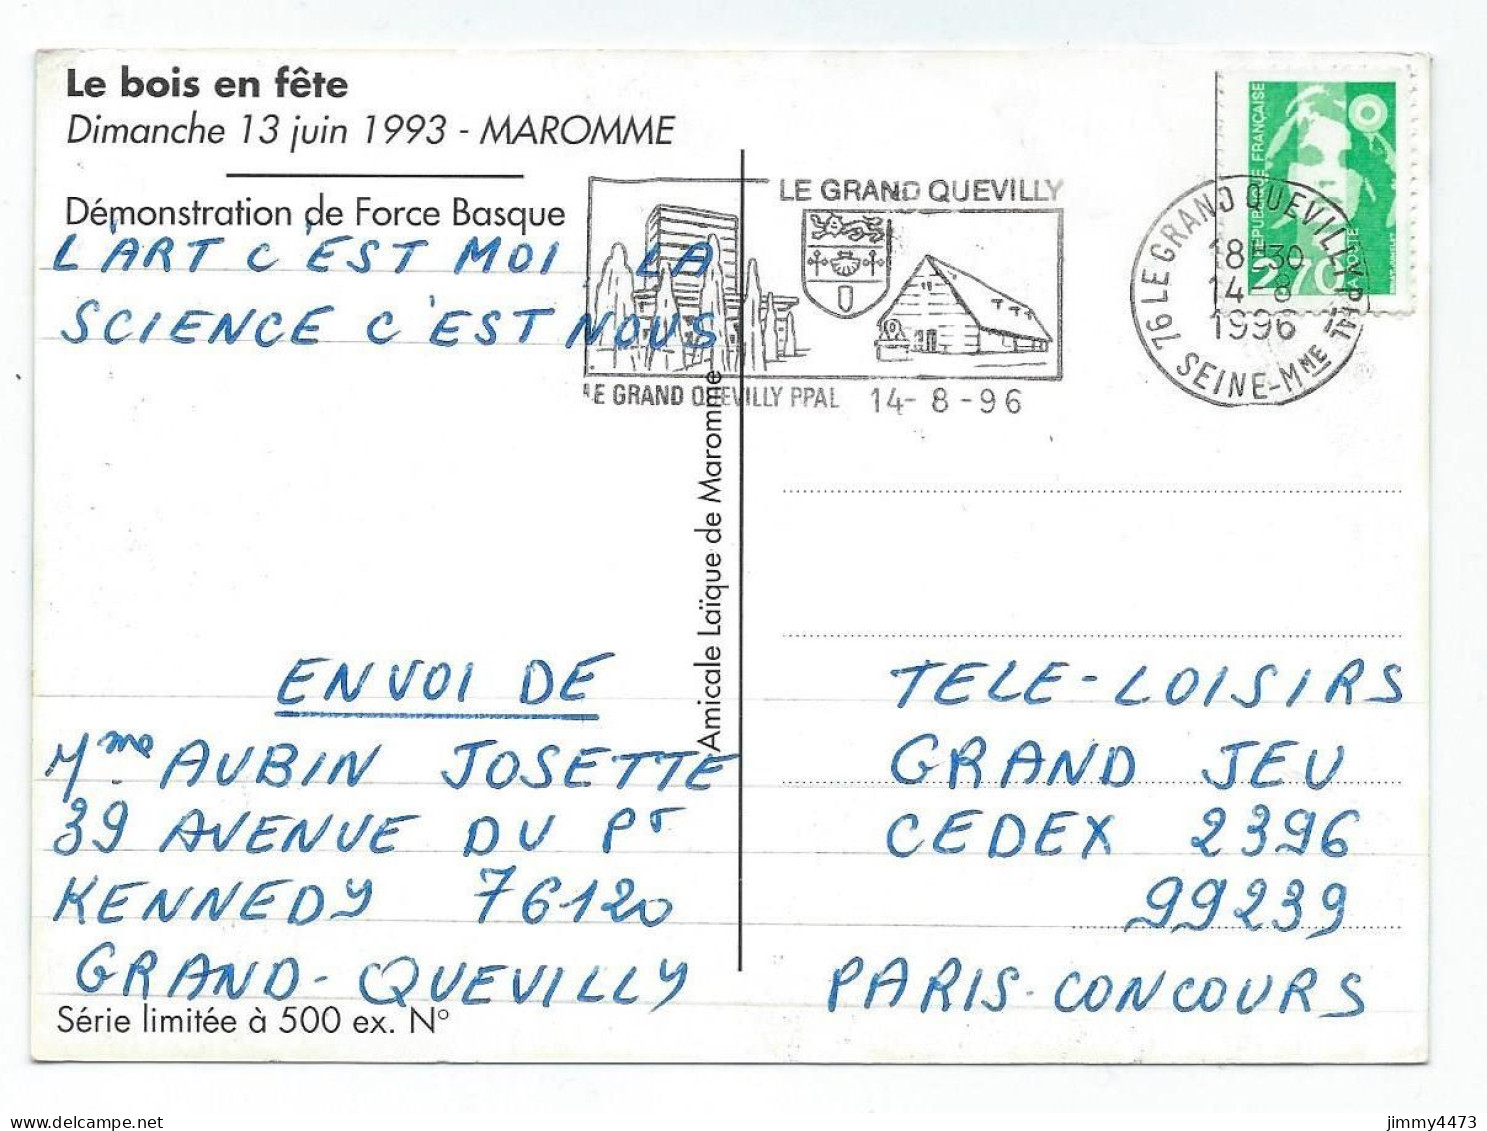 Le bois en fête
Dimanche 13 juin 1993 - MAROMME
Démonstration de Force Basque
L'ART C'EST MOI LA
SCIENCE C'EST NOUS
LE GRAND QUEVILLY
LE GRAND QUEVILLY PPAL 14-8-96
RÉPUBLIQUE FRANÇAISE
2,70
LA POSTE
76 LE GRAND QUEVILLY PPAL
18H30
14-8
1996
SEINE-MME
Amicale Laïque de Maromme
ENVOI DE
Mme AUBIN JOSETTE
39 AVENUE DU PT
KENNEDY 76120
GRAND-QUEVILLY
Série limitée à 500 ex. N°
TELE-LOISIRS
GRAND JEU
CEDEX 2396
99239
PARIS-CONCOURS
delcampe.net
jimmy4473